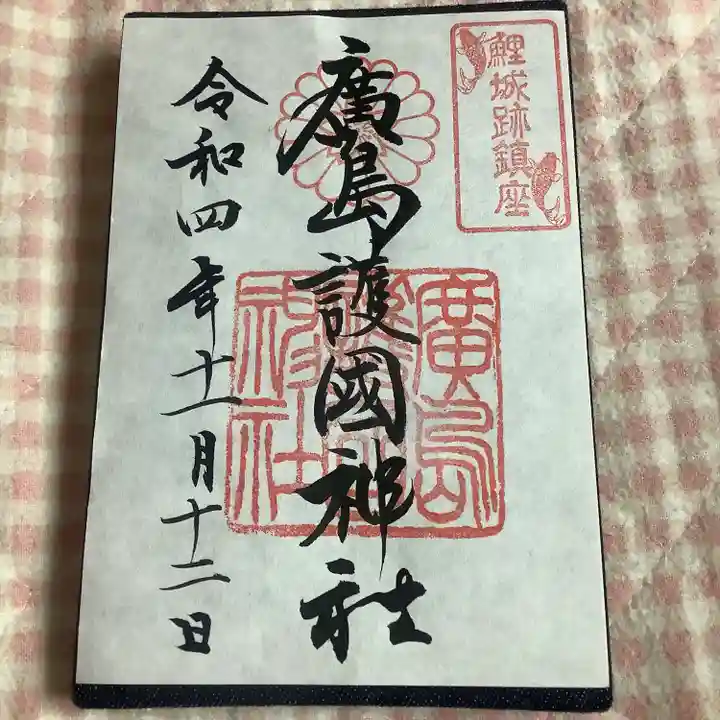 鯉城跡鎮座
廣島護國神社
廣島護國神社
令和四年十一月十二日